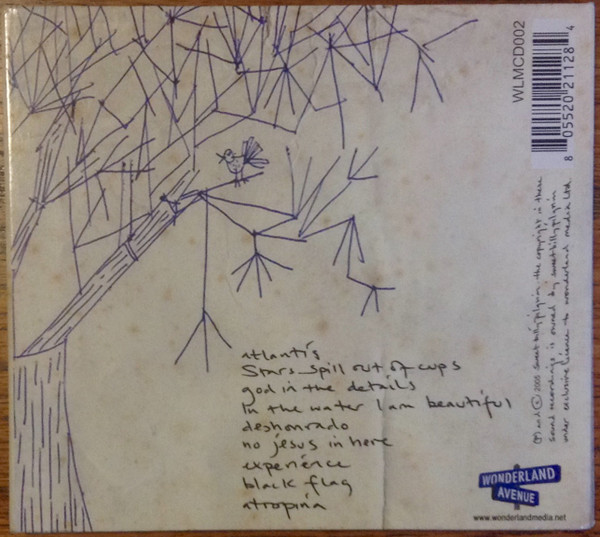 atlantis
Stars spill out of cups
god in the details
In the water I am beautiful
deshonrado
no jesus in here
experience
black flag
atropina
WLMCD002
8 05520 21128 4
(P) and © 2005 sweetbillypilgrim the copyright in these
sound recordings is owned by sweetbillypilgrim
under exclusive licence to wonderland media Ltd.
WONDERLAND
AVENUE
www.wonderlandmedia.net